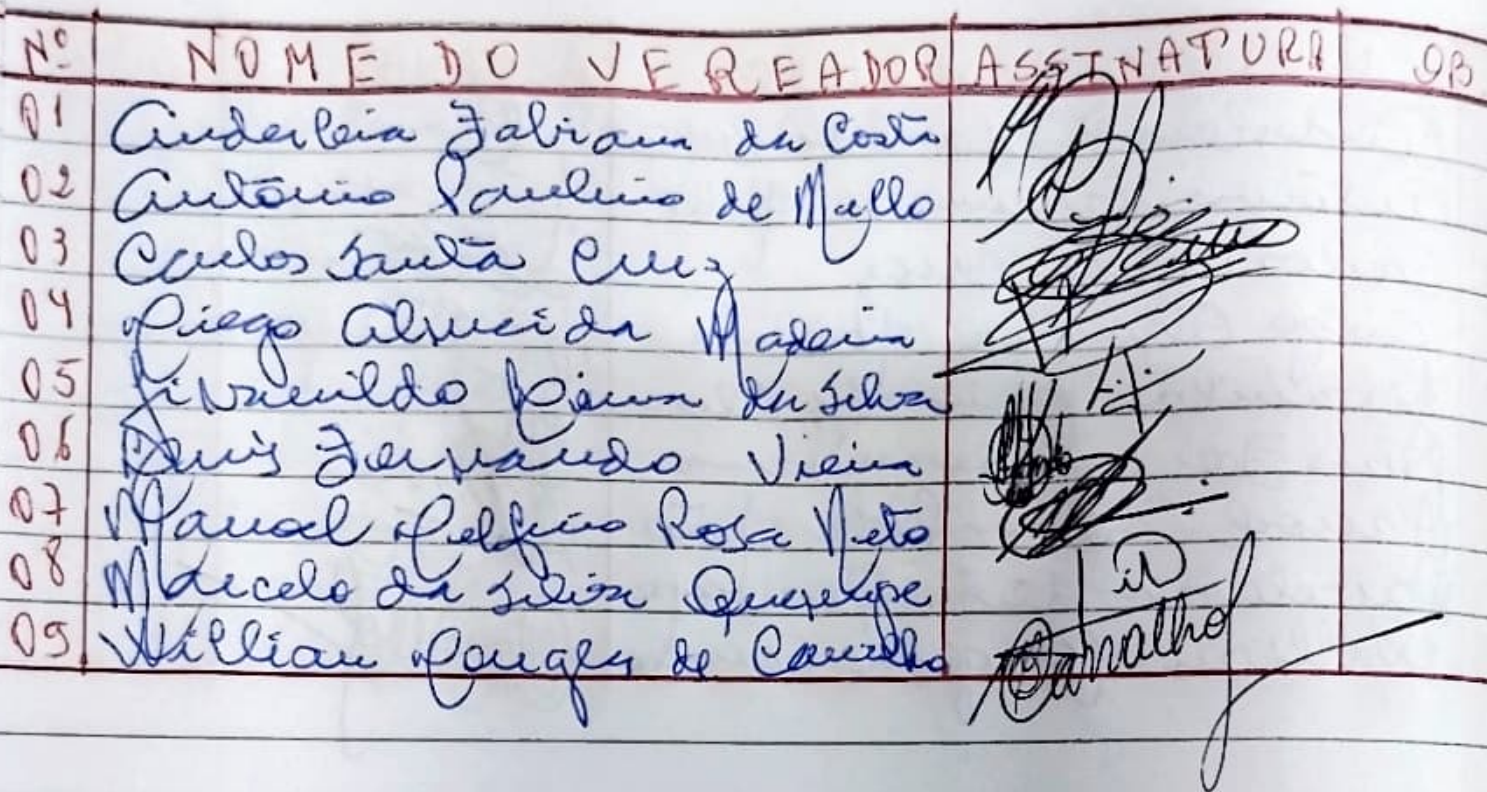 Nº NOME DO VEREADOR ASSINATURA OB
01 Anderleia Fabiana da Costa
02 Antônio Paulino de Mello
03 Carlos Santa Cruz
04 Diego Almeida Madeira
05 da Silva
06 Denis Fernando Vieira
07 Manoel Delfino Rosa Neto
08 Marcelo da Silva
09 Willian Douglas de Carvalho Carvalho